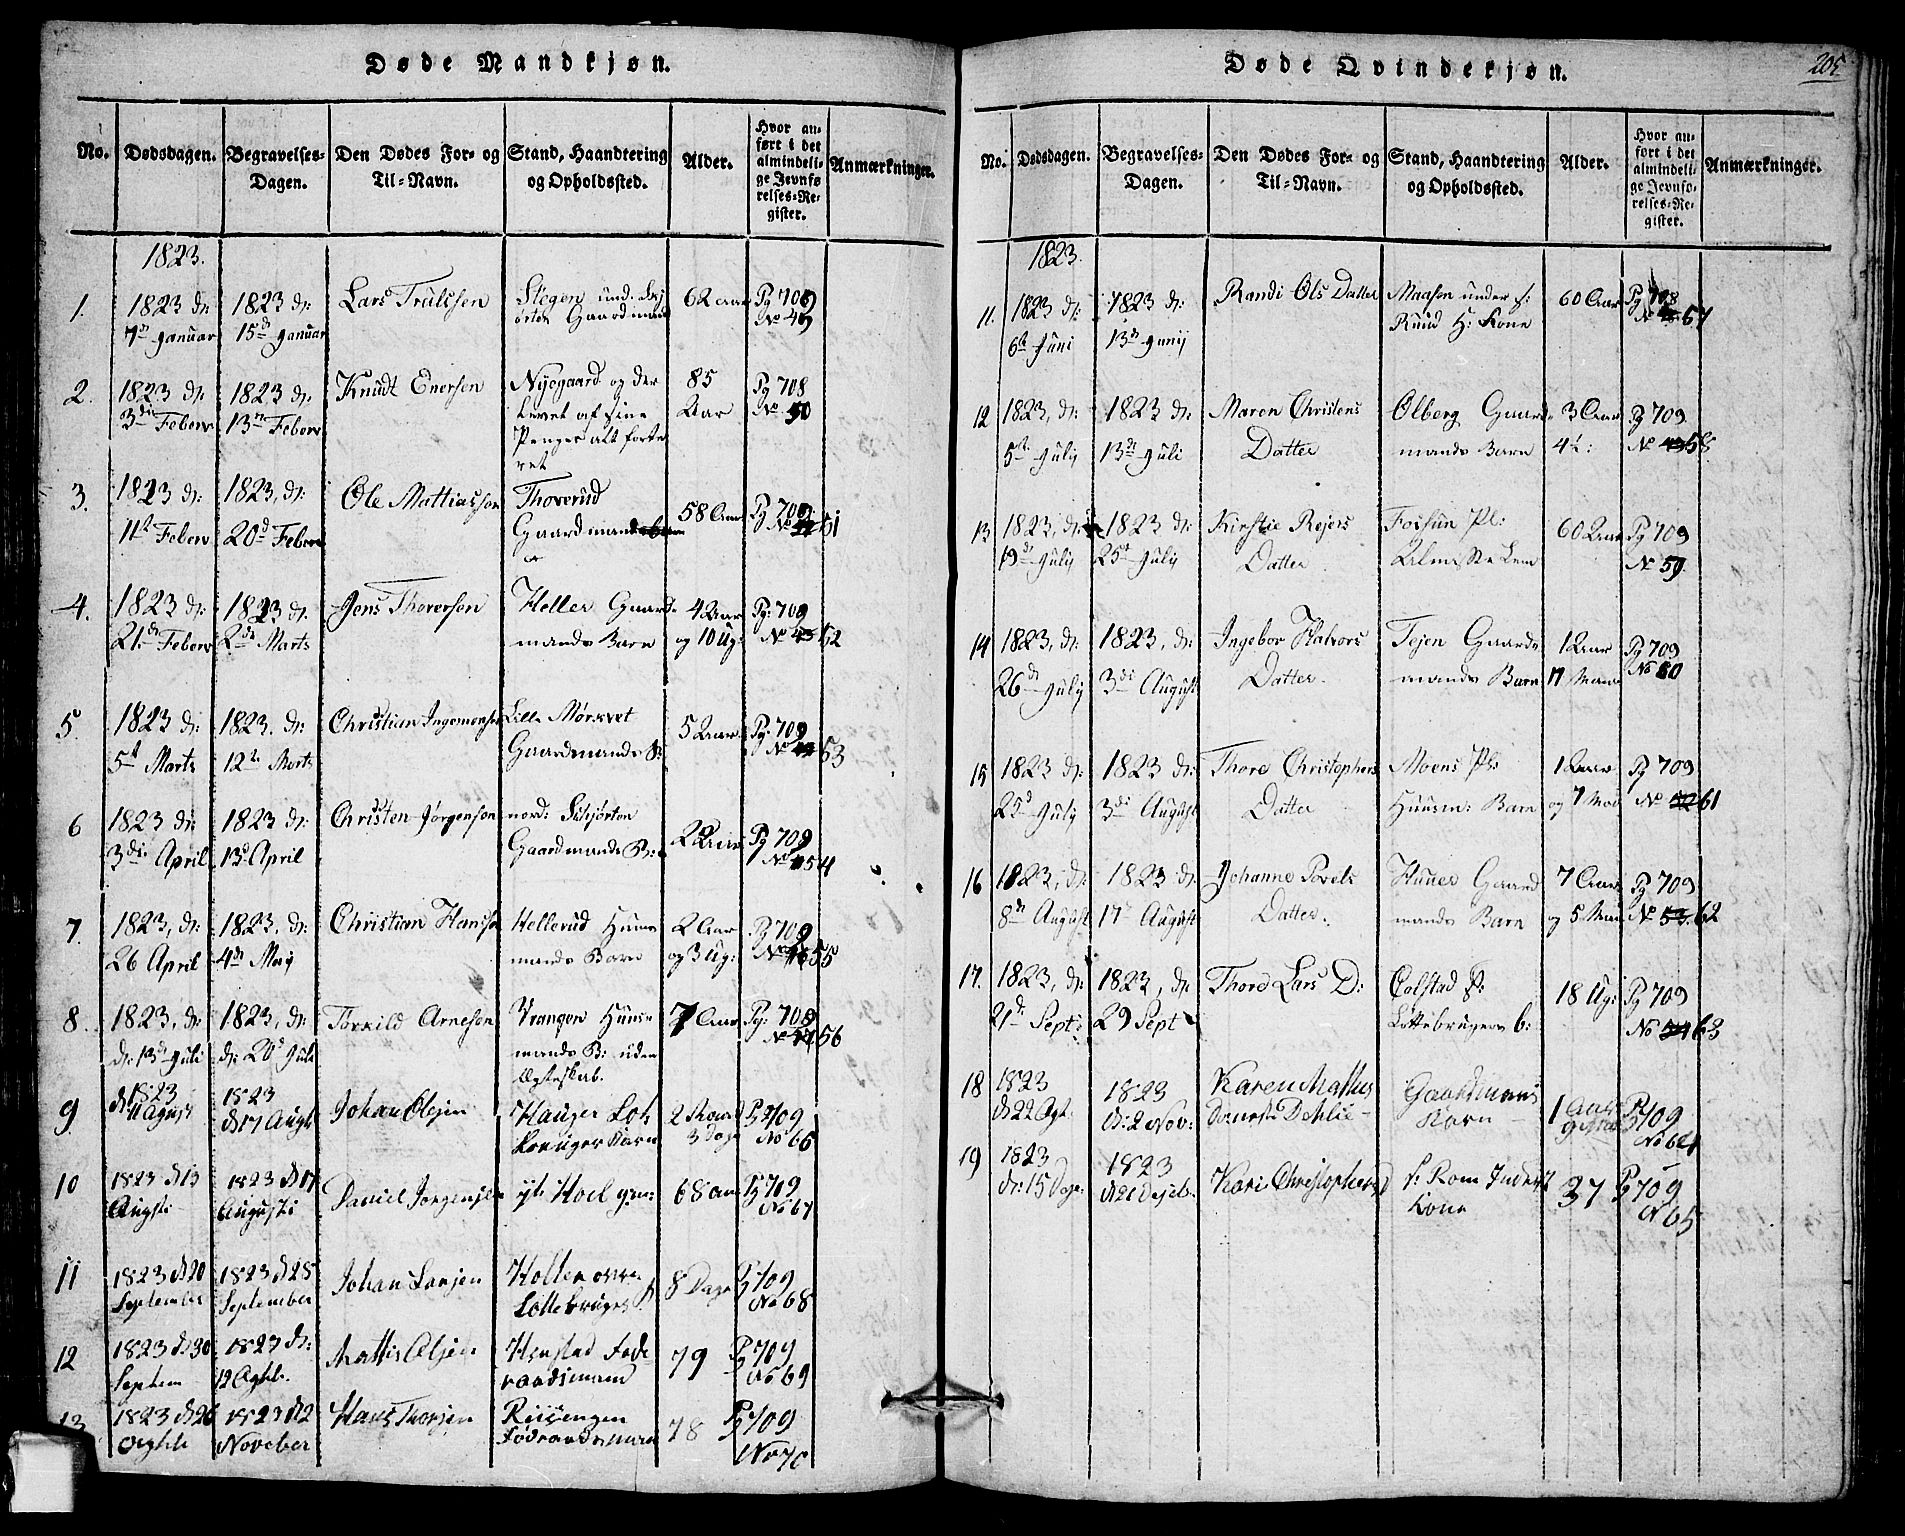 Døde Mandkjøn.
No. Dødsdagen. Begravelses-Dagen. Den Dødes For- og Til-Navn. Stand, Haandtering og Opholdssted. Alder. Hvor anført i det almindelige Jevnførelses-Register. Anmærkninger.
1823.
1. 1823 d: 7de Januar 1823 d: 15de Januar Lars Trulssen Gaardmand 62 Aar Pg 709 No 49
2. 1823 d: 3die Febev 1823 d: 13de Febev Knudt Enersen Nyegaard og der levet af sine Penger alt forte ret 85 Aar Pg 708 No 50
3. 1823 d: 11t Febev 1823, d: 20d Febev Ole Mattiassen Thorerud Gaardmand 58 Aar Pg 709 No 51
4. 1823 d: 21de Febev 1823 d: 2de Marts Jens Thorersen Heller Gaardmands Barn 4 Aar og 10 Ug: Pg: 709 No 52
5. 1823 d: 5t Marts 1823. d: 12te Marts Christian Ingemansen Lille Mørkvet Gaardmands B: 5 Aar Pg: 709 No 53
6 1823 d: 3di April 1823 d: 13d April Christen Jørgenson nord: Gaardmands B: 2 Aar Pg 709 No 54
7. 1823, d: 26 April 1823, d: 4de Maij Christian Hansen Hellerud Huusmands Barn 2 Aar og 3 Ug: Pg 709 No 55
8. 1823, d: d: 13de Juli 1823, d: d: 20d Juli Torkild Arneson Vrangen Huusmands B: uden Ægteskab. 7 Aar Pg: 708 No 56
9 1823 d 11 Agust 1823 d 17 Augst Johan Olsen Hauger Lottebruger Barn 2 Maand 3 Dage Pg 709 No 66
10 1823 d 13 Augsti 1823 d 17 Augusti Daniel Jørgensen Hoel 68 aar Pg 709 No 67
11 1823 d 20 September 1823 d 28 September Johan Larsen Holter Lottebruger 8 Dage Pg 709 No 68
12 1823 d 30 Septem 1823 d: 12 Octbr. Mattis Olsen Henstad Føderaadsmand 79 Pg 709 No 69
13 1823 d 26 Octbr 1823 d 2 November Hans Thorsen Føderaadsmand 78 Pg 709 No 70
Døde Qvindekjøn.
205
No. Dødsdagen. Begravelses-Dagen. Den Dødes For- og Til-Navn. Stand, Haandtering og Opholdssted. Alder. Hvor anført i det almindelige Jevnførelses-Register. Anmærkninger.
1823.
11. 1823 d: 6te Juni 1823 d: 13de Junij Randi Ols Datter Maasen under f: Ruud H: Kone 60 Aar Pg 708 No 57
12 1823, d: 5te July 1823 d: 13de Juli Maren Christens Datter Ølberg Gaardmands Barn 3 Aar 4½: Pg 709 No 58
13 1823, d: 19de July 1823 d: 25t July Kirstie Rejers Datter Fossun Pl: Almisse Lem 60 Aar Pg 709 No 59
14 1823, d: 26de July 1823, d: 3di August Ingebor Halvors Datter. Tejen Gaardmands Barn 1 Aar Pg 709 No 60
15 1823 d: 25d July 1823 d: 3di August Thore Christophers Datter Moens Pl: Huusm: Barn 1 Aar og 7 Mai Pg 709 No 61
16 1823, d: 8de August 1823 d: 17 August Johanne Povels Datter. Huuer Gaardmands Barn 7 Aar og 5 Maa Pg 709 No 62
17. 1823, d: 21de Sept: 1823, d: 29 Sept Thore Lars D: Colstad P: Lottebrugers b: 18 Ug: Pg 709 No 63
18 1823 d 22 1823 d: 2 Nov: Karen Mathis Gaardmans Barn 1 Aar Pg 709 No 64
19 1823 d: 15 1823 d 21 Kari Christophers D Kone 37 Pg 709 No 65